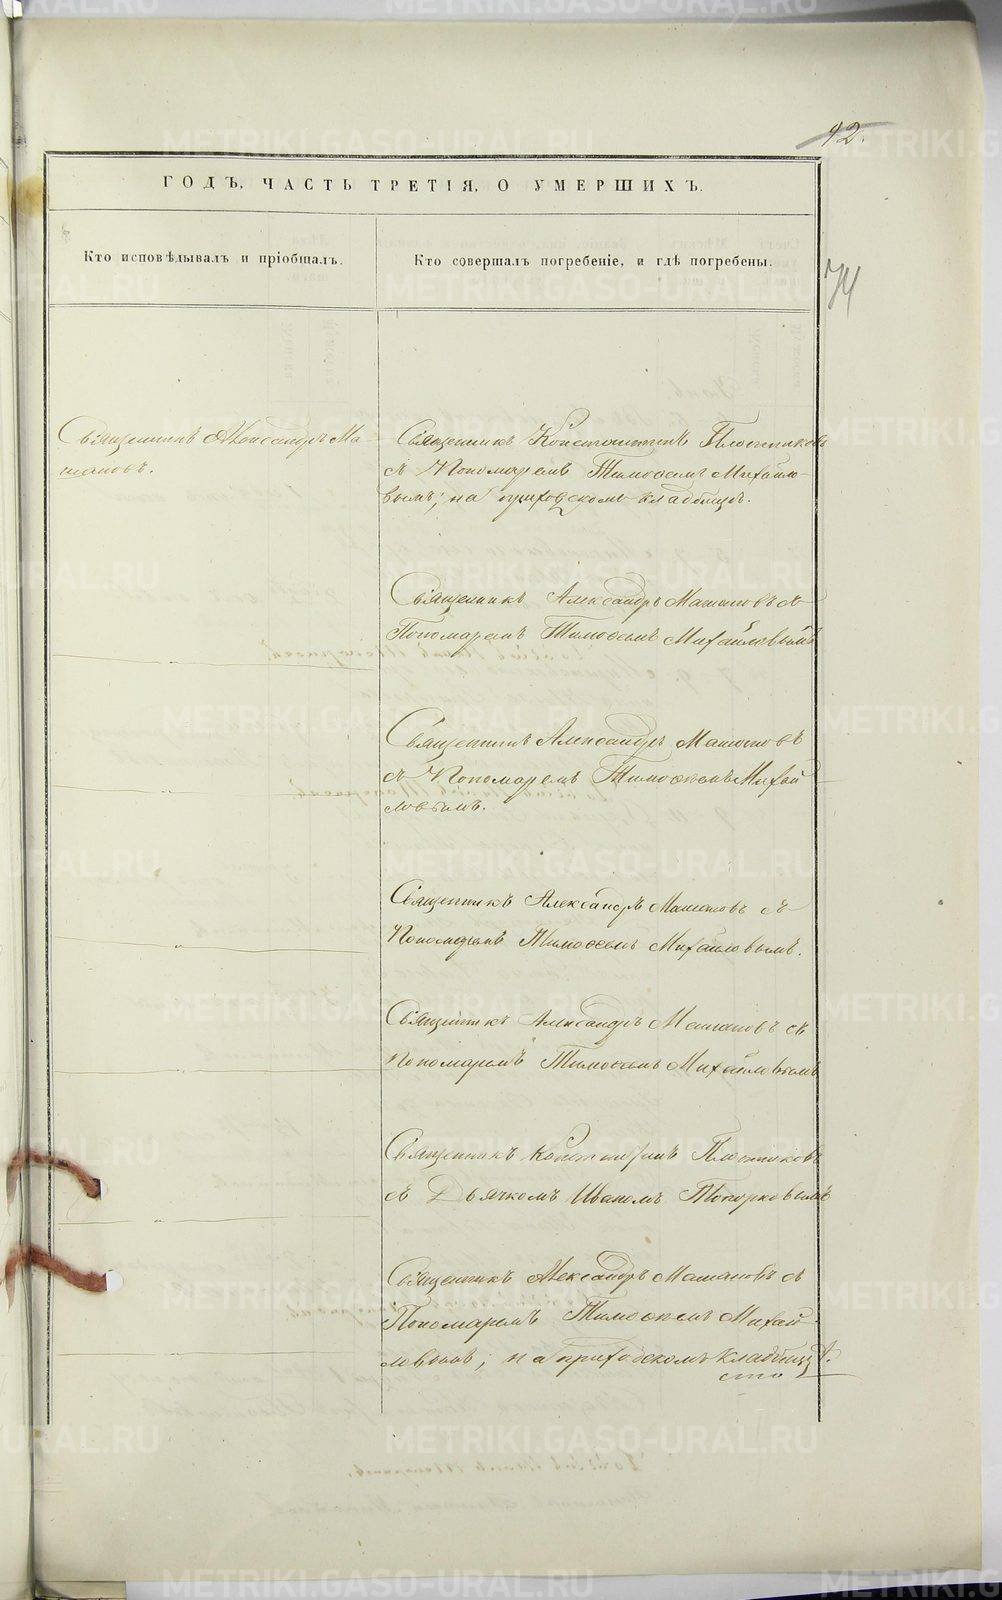 42.
ГОДЪ, ЧАСТЬ ТРЕТІЯ, О УМЕРШИХЪ.
74
Кто исповѣдывалъ и пріобщалъ.
Кто совершалъ погребеніе, и гдѣ погребены.
Священникъ Александръ Ма-
шановъ.
Священникъ Константинъ Плотниковъ
съ Пономаремъ Тимоѳеемъ Михайло-
вымъ; на приходскомъ кладбищѣ.
Священникъ Александръ Машановъ съ
Пономаремъ Тимоѳеемъ Михайловымъ
Священникъ Александръ Машановъ
съ Пономаремъ Тимоѳеемъ Михай
ловымъ.
Священникъ Александръ Машановъ съ
Пономаремъ Тимоѳеемъ Михайловымъ.
Священникъ Александръ Машановъ съ
Пономаремъ Тимоѳеемъ Михайловымъ
Священникъ Константинъ Плотниковъ
съ Дьячкомъ Иваномъ Топорковымъ
Священникъ Александръ Машановъ съ
Пономаремъ Тимоѳеемъ Михай-
ловымъ; на приходскомъ кладбищѣ.
METRIKI.GASO-URAL.RU